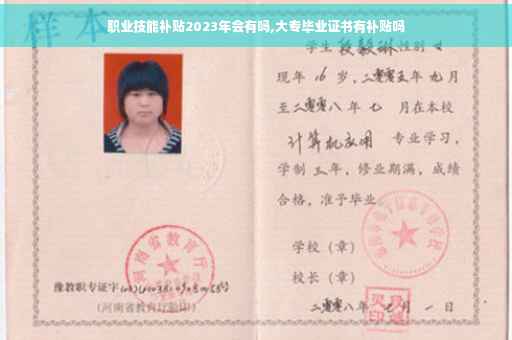 样本
职业技能补贴2023年会有吗,大专毕业证书有补贴吗
学生 段毅琳 性别 女
现年 16 岁，二零零五年 九 月
至二零零八 年 七 月在本校
计算机应用 专业学习，
学制 三 年，修业期满，成绩
合格，准予毕业
学校（章）
校长（章）
二零零八 年 七 月 一 日
河南省教育厅
豫教职专证字
（河南省教育厅验印）